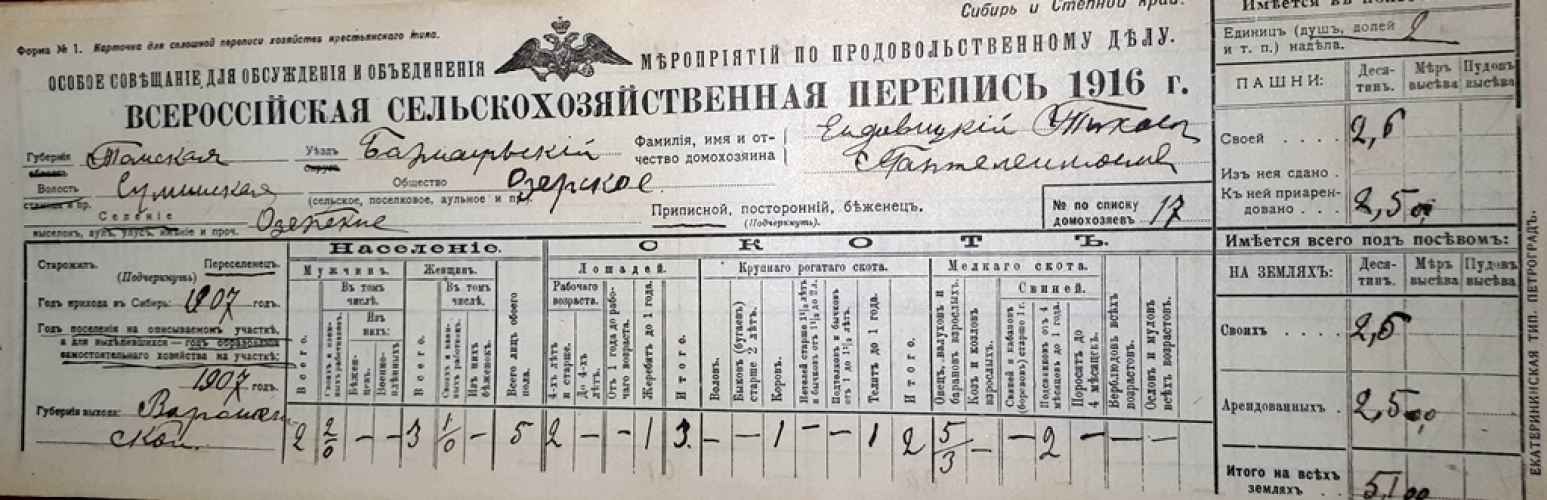 Сибирь и Степной край.
Форма № 1. Карточка для сплошной переписи хозяйствъ крестьянскаго типа.
ОСОБОЕ СОВѢЩАНІЕ ДЛЯ ОБСУЖДЕНІЯ И ОБЪЕДИНЕНІЯ МѢРОПРІЯТІЙ ПО ПРОДОВОЛЬСТВЕННОМУ ДѢЛУ.
ВСЕРОССІЙСКАЯ СЕЛЬСКОХОЗЯЙСТВЕННАЯ ПЕРЕПИСЬ 1916 г.
Губернія Томская Уѣздъ Барнаульскій Фамилія, имя и от-
область округъ чество домохозяина
Ендовицкій Тихонъ
Пантелеймонов
Волость Сузунская Общество Озерское.
станица и пр. (сельское, поселковое, аульное и пр.)
Селеніе Озерскіе Приписной, посторонній, бѣженецъ.
выселокъ, аулъ, улусъ, имѣніе и проч. (Подчеркнуть).
№ по списку
домохозяевъ 17
Старожилъ. Переселенецъ.
(Подчеркнуть)
Годъ прихода въ Сибирь: 1907 годъ.
Годъ поселенія на описываемомъ участкѣ,
а для выдѣлившихся — годъ образованія
самостоятельнаго хозяйства на участкѣ:
1907 годъ.
Губернія выхода: Воронеж
ской
Населеніе.
Мужчинъ. Женщинъ.
Всего.
Въ томъ числѣ.
Изъ нихъ:
Бѣженцевъ.
Военноплѣнныхъ.
Всего.
Въ томъ числѣ.
Изъ нихъ бѣженокъ.
Всего лицъ обоего пола.
2 2/0 — — 3 1/0 — 5
СКОТЪ.
Лошадей.
Рабочаго возраста.
4-хъ лѣтъ и старше.
До 4-хъ лѣтъ.
Отъ 1 года до рабочаго возраста.
Жеребятъ до 1 года.
Итого.
2 — — 1 3.
Крупнаго рогатаго скота.
Воловъ.
Быковъ (бугаевъ) старше 2 лѣтъ.
Коровъ.
Нетелей старше 1½ лѣтъ и бычковъ отъ 1½ до 2 л.
Подтелковъ и бычковъ отъ 1 до 1½ лѣтъ.
Телятъ до 1 года.
Итого
— — 1 — — 1 2
Мелкаго скота.
Овецъ, валуховъ и барановъ взрослыхъ.
Козъ и козловъ взрослыхъ.
Свиней.
Свиней и кабановъ (борововъ) старше 1 г.
Подсвинковъ отъ 4 мѣсяцевъ до 1 года.
Поросятъ до 4 мѣсяцевъ.
Верблюдовъ всѣхъ возрастовъ.
Ословъ и муловъ всѣхъ возрастовъ.
5/3 — — 2 — — —
Единицъ (душъ, долей 2
и т. п.) надѣла.
ПАШНИ: Десятинъ. Мѣръ высѣва Пудовъ высѣва
Своей 2,5
Изъ нея сдано
Къ ней приарен-
довано 2,500
Имѣется всего подъ посѣвомъ:
НА ЗЕМЛЯХЪ: Десятинъ. Мѣръ высѣва Пудовъ высѣва
Своихъ 2,5
Арендованныхъ 2,500
Итого на всѣхъ
земляхъ
ЕКАТЕРИНИНСКАЯ ТИП. ПЕТРОГРАДЪ.